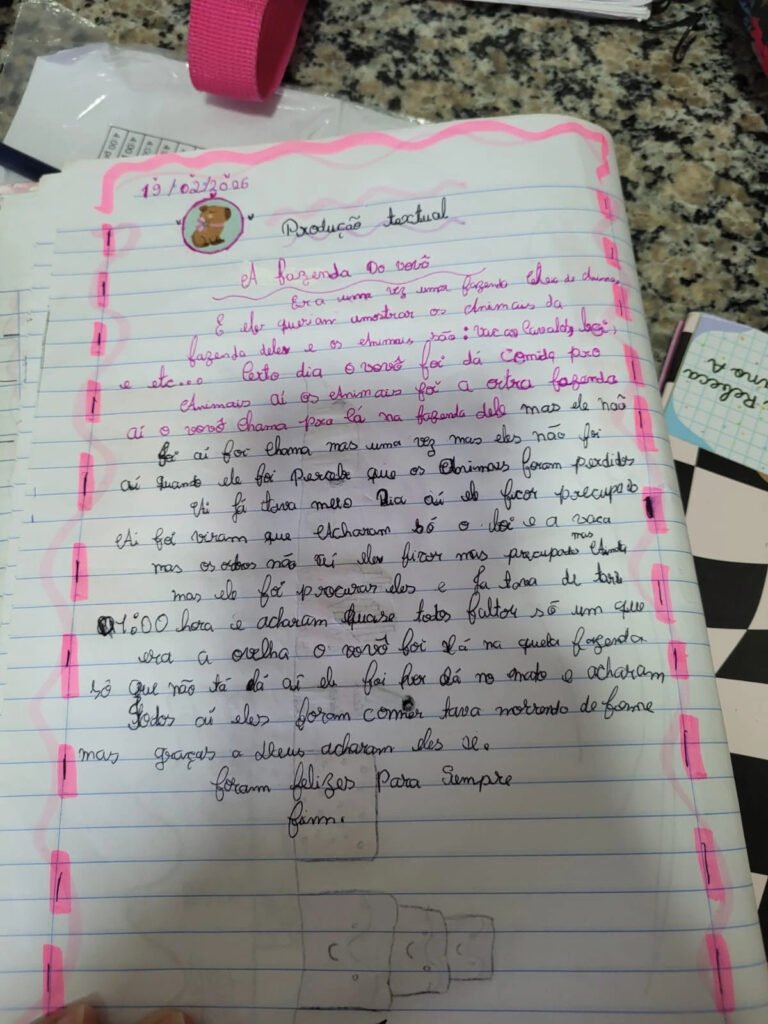 19/02/2026
Produção textual
A fazenda Do vovô
Era uma vez uma fazenda cheia de Animais
E eles queriam amostrar os Animais da
fazenda deles e os Animais são: vacas Cavalos, boi,
e etc... Certo dia o vovô foi dá comida pro
Animais aí os Animais foi a ortra fazenda
aí o vovô chama pra lá na fazenda dele mas ele não
foi aí foi chama mas uma vez mas eles não foi
aí quando ele foi percebe que os Animais foram perdidos
Ai já tava meio Dia aí ele ficor precupado
Ai foi viram que Acharam só o boi e a vaca
mas os otros não aí eles ficor mas precupado mas Ainda
mas ele foi procurar eles e ja tava de tarde
1:00 hora e acharam quase todos faltor só um que
era a ovelha o vovô foi lá na quela fazenda
só que não tá lá aí ele foi ver lá no mato e acharam
todos aí eles foram comer tava morrendo de fome
mas graças a Deus acharam eles e.
foram felizes Para Sempre
fim.
Rebeca
ano A
4:00